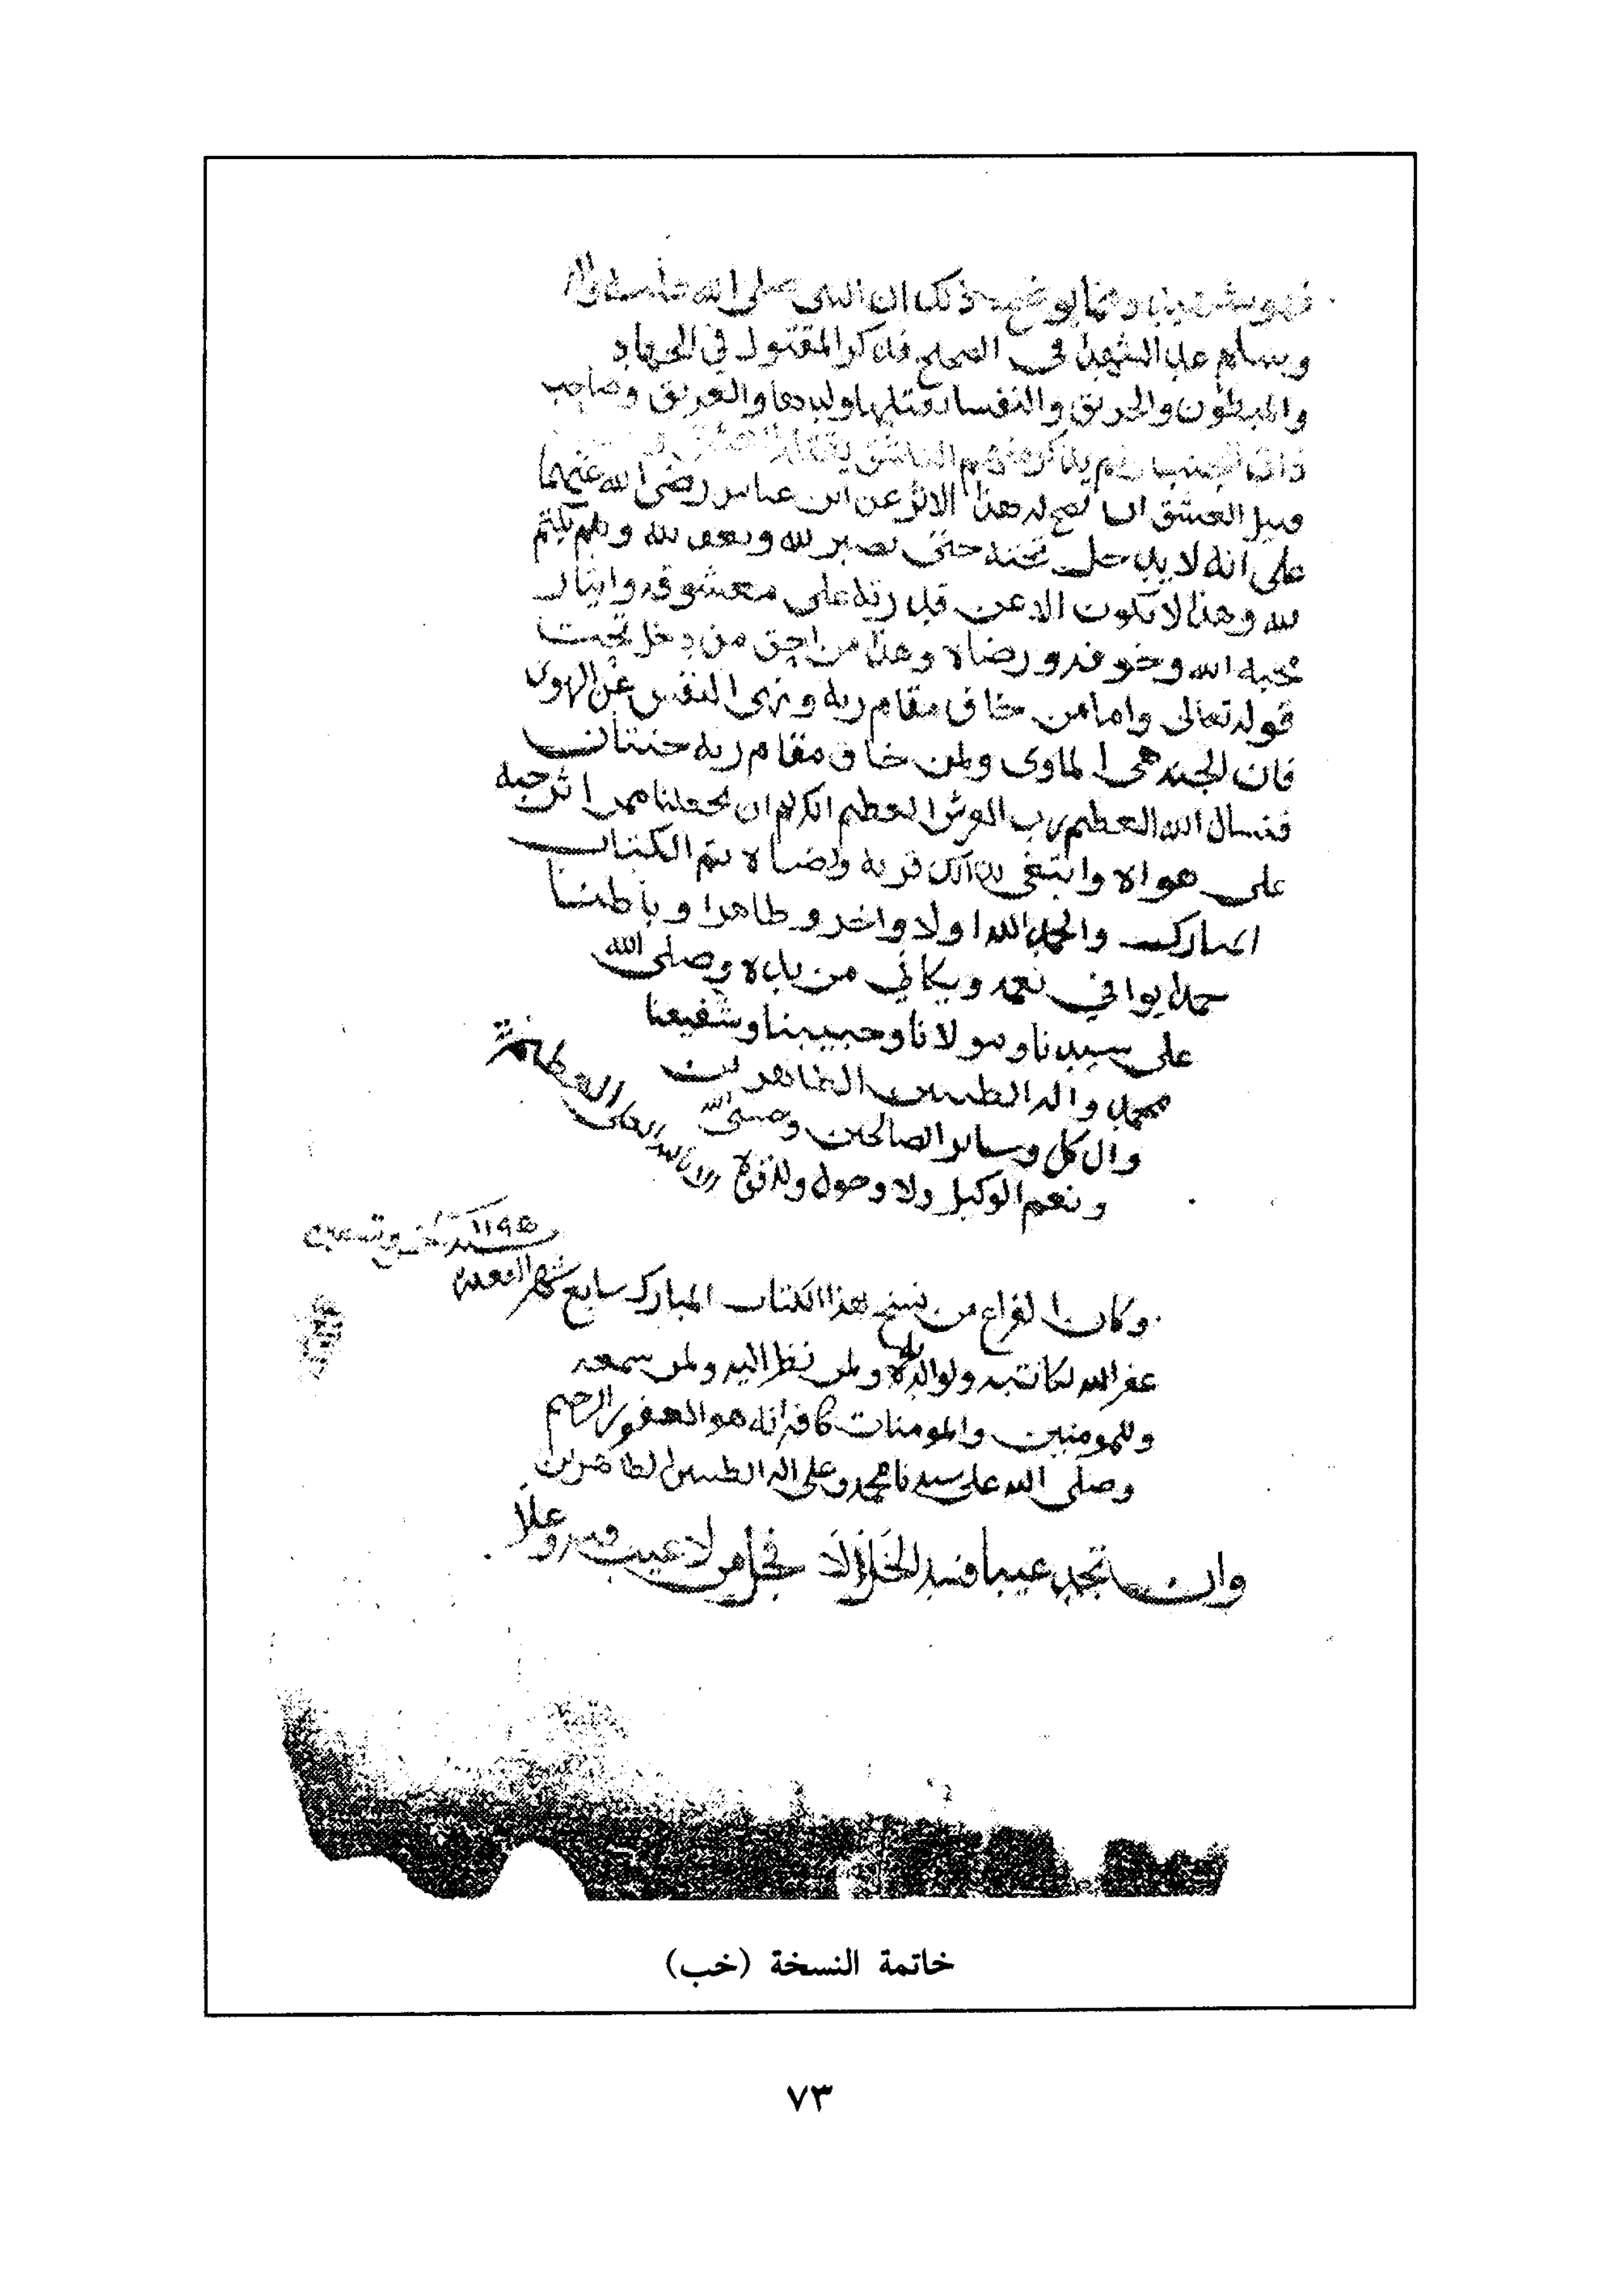 فهو شهيد ومما يوضح ذلك ان النبي صلى الله عليه واله
وسلم عد الشهدا في الصحيح فذكر المقتول في الجهاد
والمبطون والحريق والنفسا يقتلها ولدها والغريق وصاحب
ذات الجنب ولم يذكر منهم العاشق يقتله العشق
قتيل العشق ان يصح له هذا الاثر عن ابن عباس رضي الله عنهما
على انه لا يدخل تحته حتى يصبر لله ويعف لله ويكتم
لله وهذا لا يكون الا عن قدرته على معشوقه وايثار
محبة الله وخوفه ورضاه وهذا من احق من دخل تحت
قوله تعالى واما من خاف مقام ربه ونهى النفس عن الهوى
فان الجنة هي الماوى ولمن خاف مقام ربه جنتان
فنسال الله العظيم رب العرش العظيم الكريم ان يجعلنا ممن اثر حبه
على هواه وابتغى بذلك قربه ورضاه تم الكتاب
المبارك والحمد لله اولا واخر وظاهرا وباطنا
حمدا يوافي نعمه ويكافي مزيده وصلى الله
على سيدنا ومولانا وحبيبنا وشفيعنا
محمد واله الطيبين الطاهرين
وال كل وساير الصالحين وحسبي الله
ونعم الوكيل ولا وحول ولا قوة الا بالله العلي العظيم
وكان الفراغ من نسخ هذا الكتاب المبارك سابع شهر القعده
سنة ١١٩٥ خمس وتسعين
غفر الله لكاتبه ولوالديه ولمن نظر اليه ولمن سمعه
وللمومنين والمومنات كافه انه هو الغفور الرحيم
وصلى الله على سيدنا محمد وعلى اله الطيبين الطاهرين
وان تجد عيبا فسد الخللا فجل من لا عيب فيه وعلا
خاتمة النسخة (خب)
٧٣